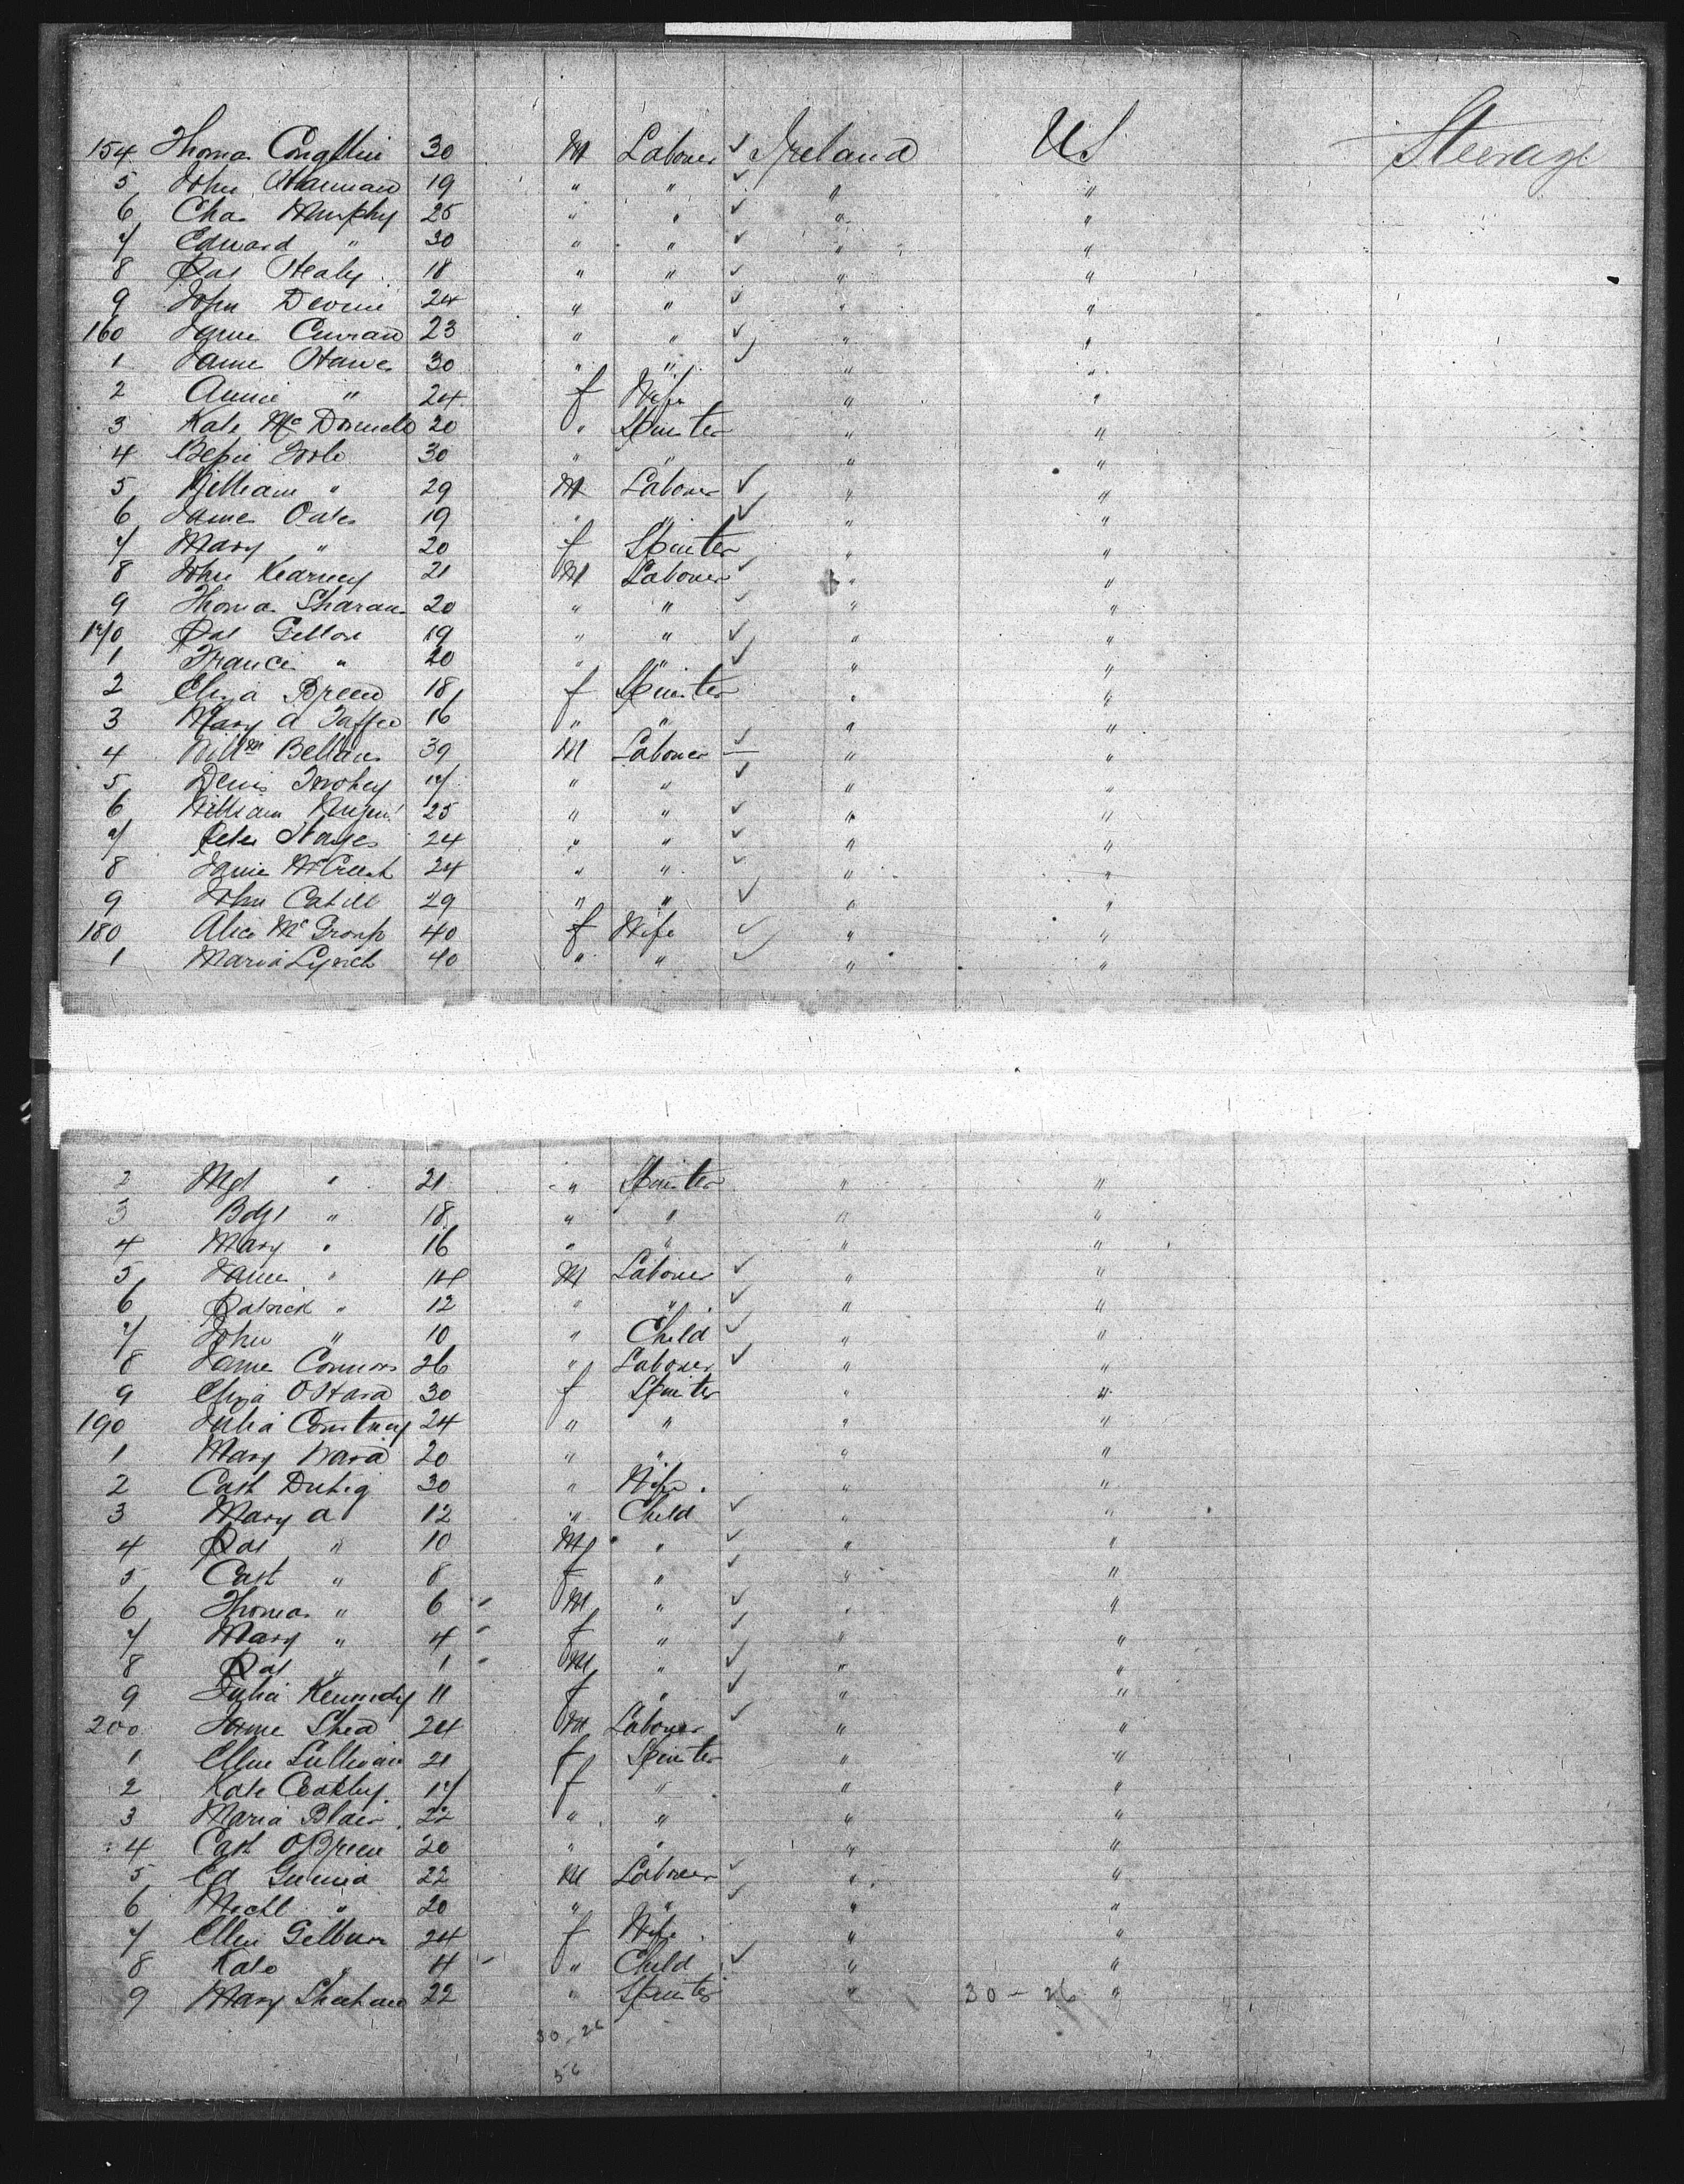 154 Thomas 30 M Laborer ✓ Ireland US Steerage
5 John Hannan 19 " " ✓ " "
6 Chas Murphy 25 " " ✓ " "
7 Edward " 30 " " ✓ " "
8 Pat Healy 18 " " ✓ " "
9 John Devine 24 " " ✓ " "
160 James Curran 23 " " ✓ " "
1 James Hawes 30 " " ✓ " "
2 Annie " 24 f Wife " "
3 Kate McDonnell 20 " Spinster " "
4 Bessie Toole 30 " " " "
5 William " 29 M Laborer ✓ " "
6 James Oates 19 " " ✓ " "
7 Mary " 20 f Spinster " "
8 John Kearney 21 M Laborer ✓ " "
9 Thomas 20 " " ✓ " "
170 Pat 19 " " ✓ " "
1 Francis " 20 " " ✓ " "
2 Eliza Breen 18 f Spinster " "
3 Mary A Taffee 16 " " " "
4 Willm 39 M Laborer ✓ " "
5 Denis 17 " " ✓ " "
6 William Nugent 25 " " ✓ " "
7 Peter Hayes 24 " " ✓ " "
8 James 24 " " ✓ " "
9 John Cahill 29 " " ✓ " "
180 Alice 40 f Wife ✓ " "
1 Maria Lynch 40 " " ✓ " "
2 Mgt " 21 " Spinster " "
3 Bdgt " 18 " " " "
4 Mary " 16 " " " "
5 James " 14 M Laborer ✓ " "
6 Patrick " 12 " " ✓ " "
7 John " 10 " Child ✓ " "
8 James Connors 26 " Laborer ✓ " "
9 Eliza OHara 30 f Spinster " "
190 Julia Courtney 24 " " " "
1 Mary Ward 20 " " " "
2 Cath Duhig 30 " Wife " "
3 Mary a " 12 " Child ✓ " "
4 Pat " 10 M " ✓ " "
5 Cath " 8 f " ✓ " "
6 Thomas " 6 M " ✓ " "
7 Mary " 4 f " ✓ " "
8 Pat " 1 M " ✓ " "
9 Julia Kennedy 11 f " ✓ " "
200 James Shea 24 M Laborer ✓ " "
1 Ellen Sullivan 21 f Spinster " "
2 Kate Coakley 17 f " " "
3 Maria Blair 22 " " " "
4 Cath OBrien 20 " " " "
5 Ed 22 M Laborer ✓ " "
6 Michl " 20 " " ✓ " "
7 Ellen 24 f Wife " "
8 Kate " 4 " Child ✓ " "
9 Mary Sheehan 22 " Spinster " 30 - 26 "
30 - 26
56